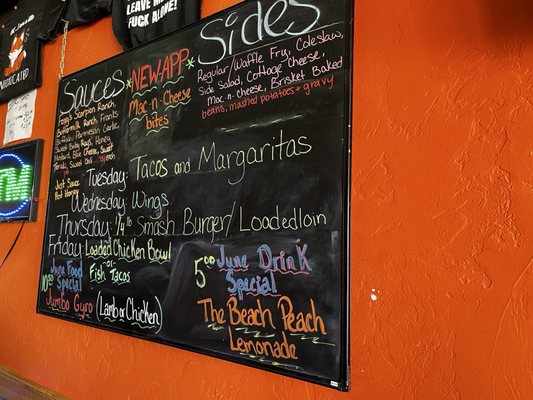 LEAVE ME
FUCK ALONE!
Sauces
Scorpion Ranch,
Buttermilk Ranch, Franks
Buffalo, Parmesan Garlic
Sweet Baby Rays, Honey
Mustard, Blue Cheese, Sweet
Chili
Just Sauce
Hot Honey
*NEW APP*
Mac-n-Cheese
bites
Sides
Regular/Waffle Fry, Coleslaw,
Side Salad, Cottage Cheese,
Mac-n-cheese, Brisket Baked
beans, mashed potatoes + gravy
Tuesday: Tacos and Margaritas
Wednesday: Wings
Thursday: 1/4 lb Smash Burger/Loadedloin
Friday: Loaded Chicken Bowl
Fish or Tacos
June Food
10.50 Special
Jumbo Gyro (Lamb or Chicken)
5.00 June Drink
Special
The Beach Peach
Lemonade